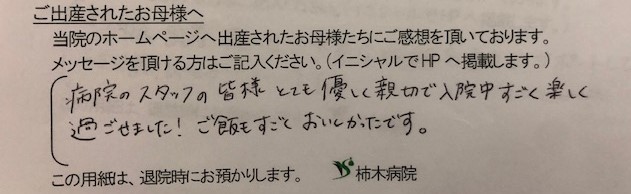 ご出産されたお母様へ
当院のホームページへ出産されたお母様たちにご感想を頂いております。
メッセージを頂ける方はご記入ください。(イニシャルでHPへ掲載します。)
病院のスタッフの皆様とても優しく親切で入院中すごく楽しく
過ごせました!ご飯もすごくおいしかったです。
この用紙は、退院時にお預かりします。 柿木病院